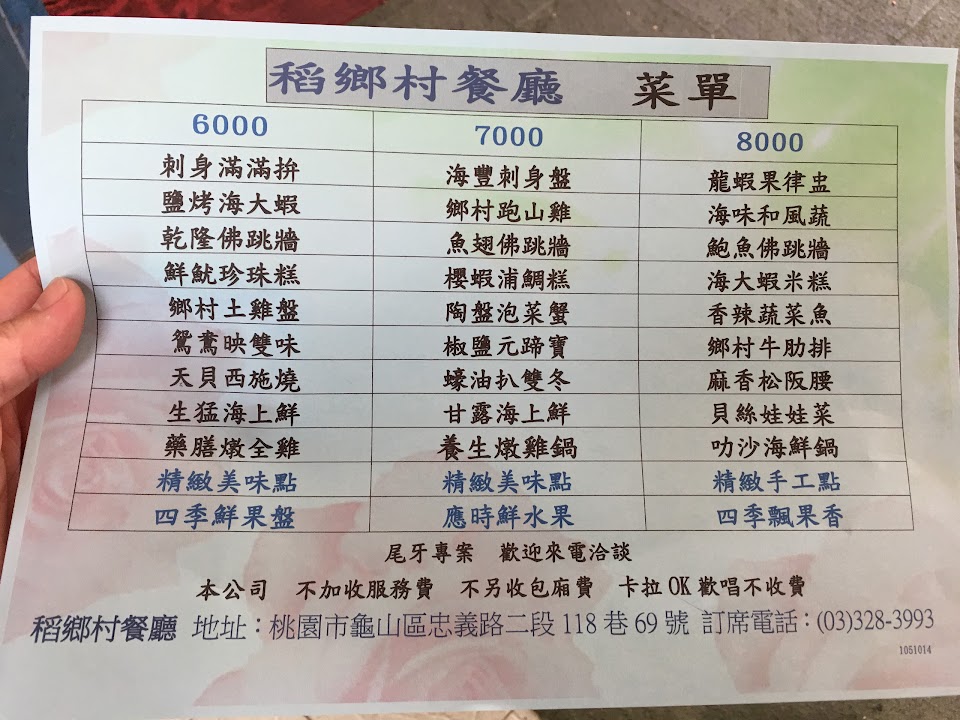 稻鄉村餐廳 菜單
6000 7000 8000
刺身滿滿拚 海豐刺身盤 龍蝦果律盅
鹽烤海大蝦 鄉村跑山雞 海味和風蔬
乾隆佛跳牆 魚翅佛跳牆 鮑魚佛跳牆
鮮魷珍珠糕 櫻蝦浦鯛糕 海大蝦米糕
鄉村土雞盤 陶盤泡菜蟹 香辣蔬菜魚
鴛鴦映雙味 椒鹽元蹄寶 鄉村牛肋排
天貝西施燒 蠔油扒雙冬 麻香松阪腰
生猛海上鮮 甘露海上鮮 貝絲娃娃菜
藥膳燉全雞 養生燉雞鍋 叻沙海鮮鍋
精緻美味點 精緻美味點 精緻手工點
四季鮮果盤 應時鮮水果 四季飄果香
尾牙專案 歡迎來電洽談
本公司 不加收服務費 不另收包廂費 卡拉OK歡唱不收費
稻鄉村餐廳 地址：桃園市龜山區忠義路二段118巷69號 訂席電話：(03)328-3993
1051014